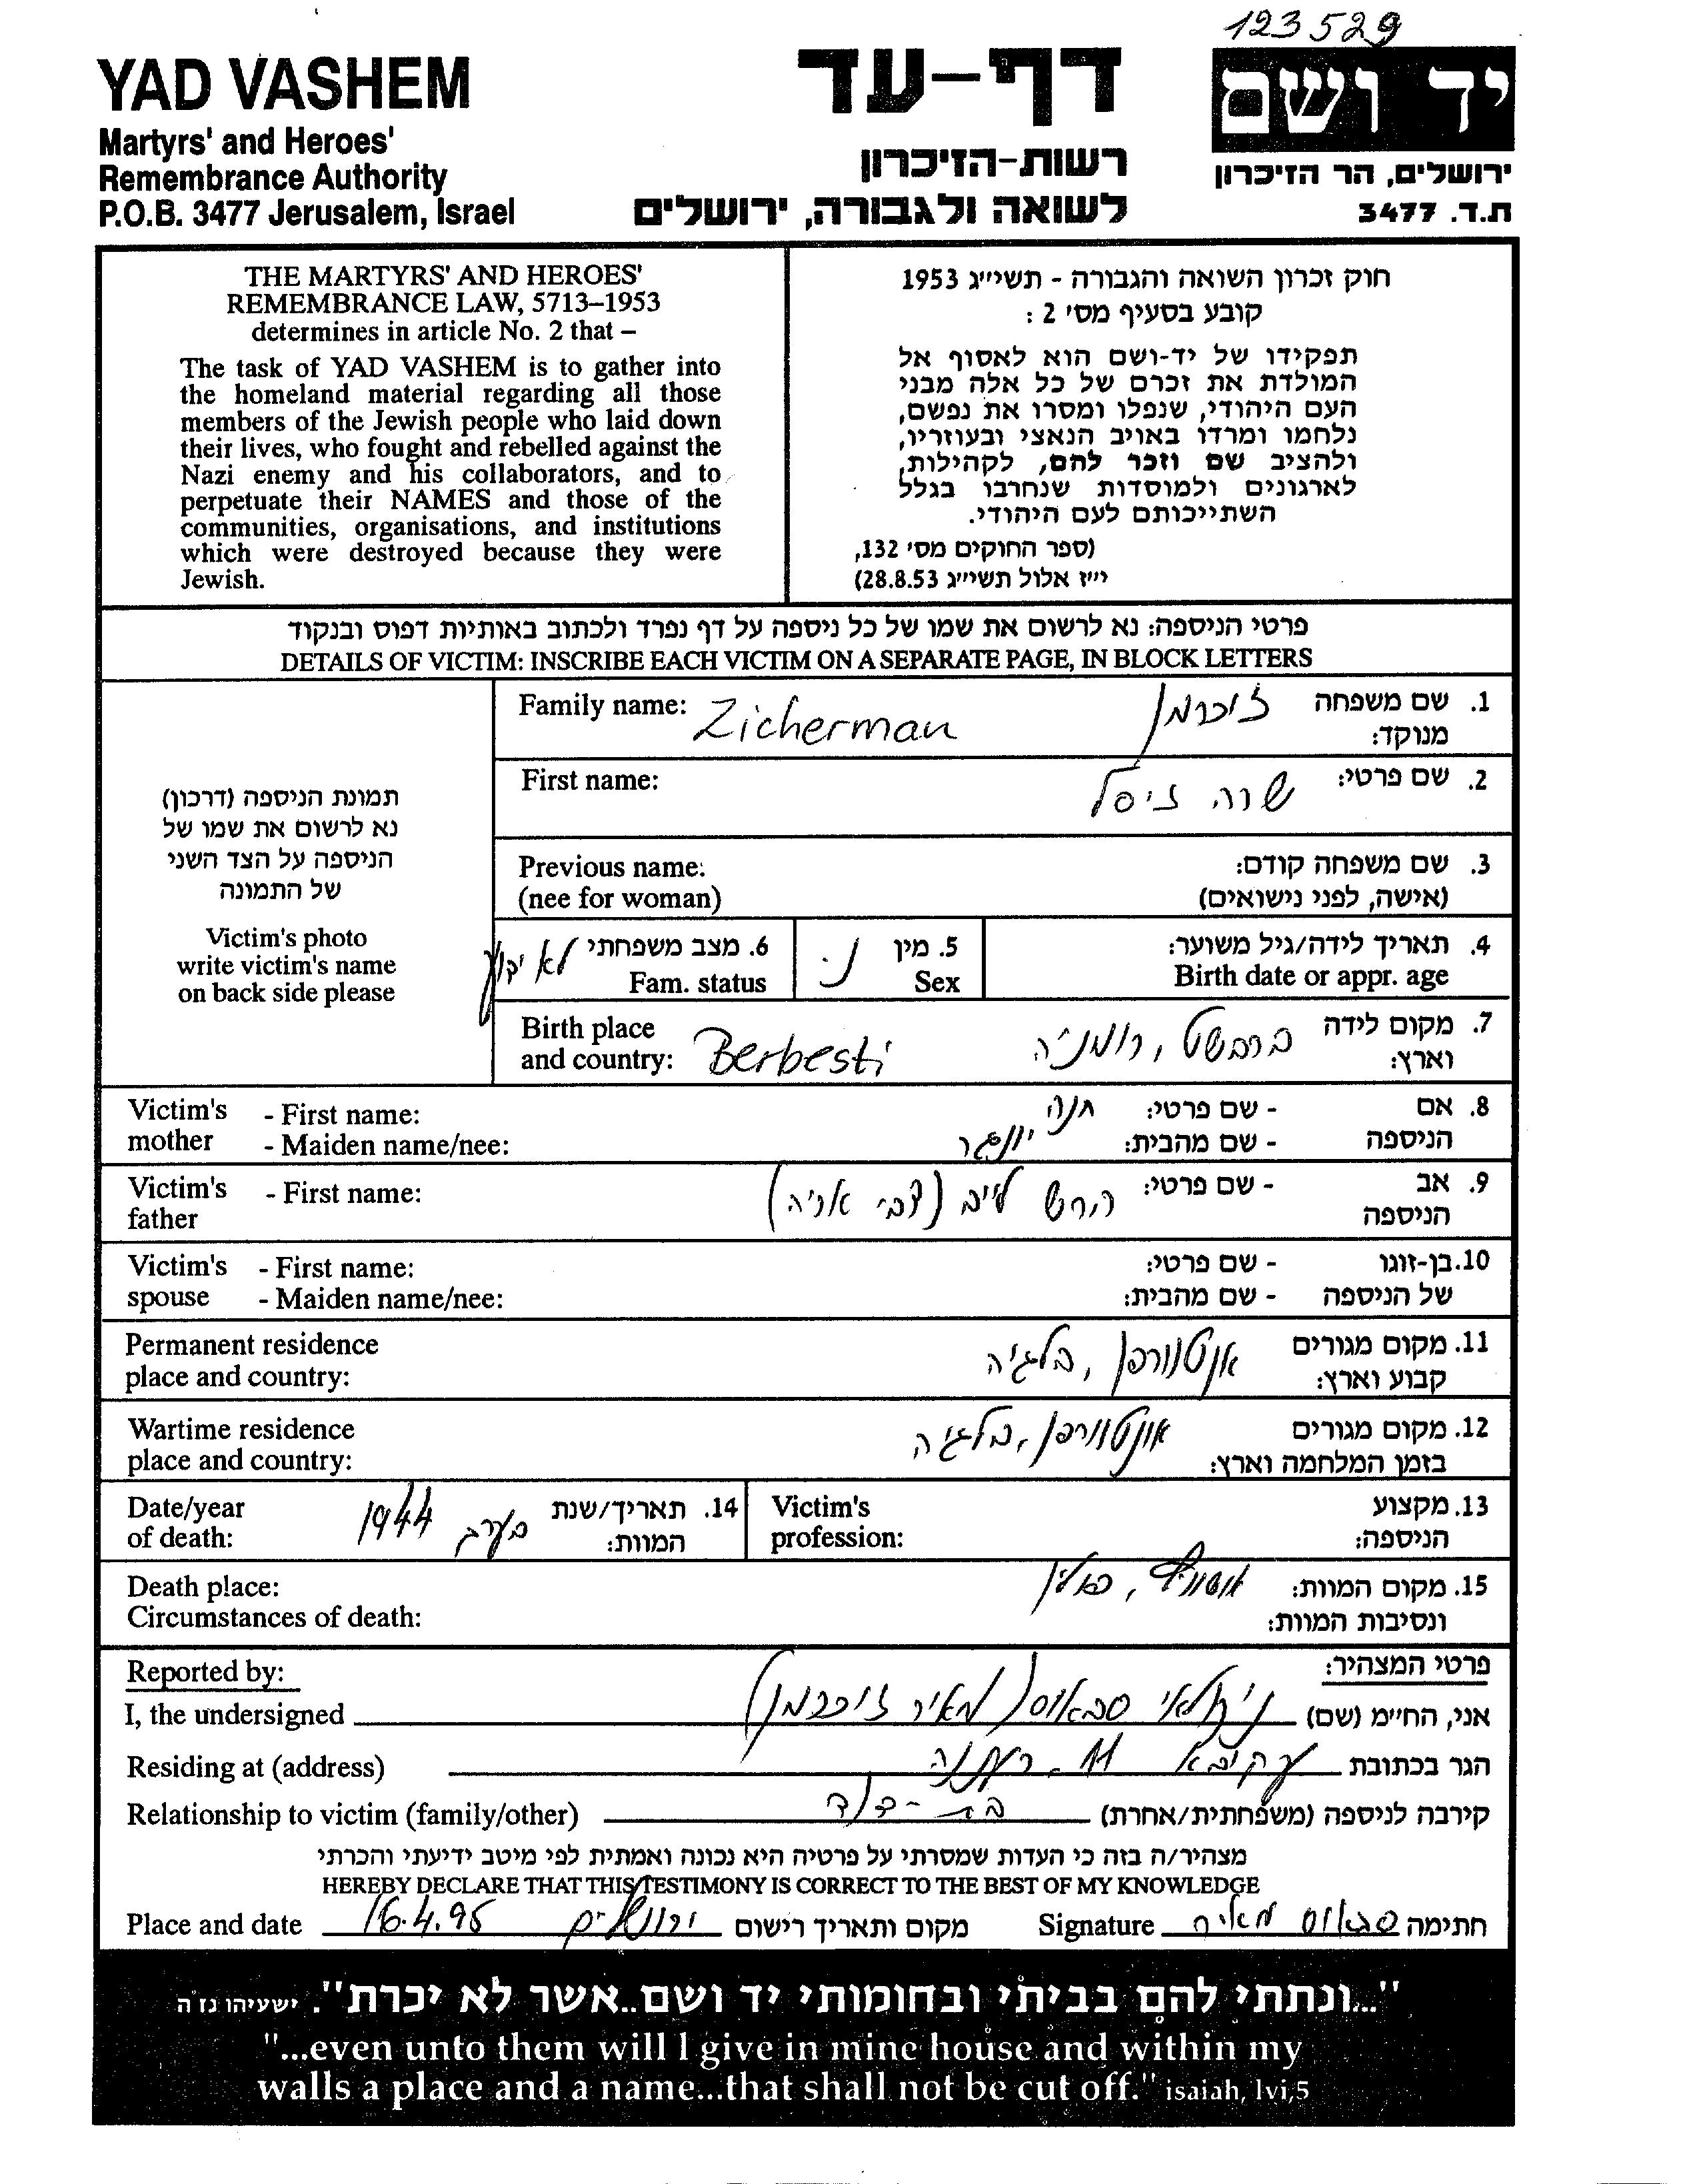 123529
YAD VASHEM
Martyrs' and Heroes'
Remembrance Authority
P.O.B. 3477 Jerusalem, Israel
דף-עד
רשות-הזיכרון
לשואה ולגבורה, ירושלים
יד ושם
ירושלים, הר הזיכרון
ת.ד. 3477
THE MARTYRS' AND HEROES'
REMEMBRANCE LAW, 5713–1953
determines in article No. 2 that –
The task of YAD VASHEM is to gather into
the homeland material regarding all those
members of the Jewish people who laid down
their lives, who fought and rebelled against the
Nazi enemy and his collaborators, and to
perpetuate their NAMES and those of the
communities, organisations, and institutions
which were destroyed because they were
Jewish.
חוק זכרון השואה והגבורה - תשי״ג 1953
קובע בסעיף מס׳ 2 :
תפקידו של יד-ושם הוא לאסוף אל
המולדת את זכרם של כל אלה מבני
העם היהודי, שנפלו ומסרו את נפשם,
נלחמו ומרדו באויב הנאצי ובעוזריו,
ולהציב שם וזכר להם, לקהילות,
לארגונים ולמוסדות שנחרבו בגלל
השתייכותם לעם היהודי.
(ספר החוקים מס׳ 132,
י״ז אלול תשי״ג 28.8.53)
פרטי הניספה: נא לרשום את שמו של כל ניספה על דף נפרד ולכתוב באותיות דפוס ובנקוד
DETAILS OF VICTIM: INSCRIBE EACH VICTIM ON A SEPARATE PAGE, IN BLOCK LETTERS
תמונת הניספה (דרכון)
נא לרשום את שמו של
הניספה על הצד השני
של התמונה
Victim's photo
write victim's name
on back side please
Family name: Zicherman זיכרמן 1. שם משפחה
מנוקד:
First name: שרה זיסל 2. שם פרטי:
Previous name: 3. שם משפחה קודם:
(nee for woman) (אישה, לפני נישואים)
6. מצב משפחתי לא ידוע 5. מין נ. 4. תאריך לידה/גיל משוער:
Fam. status Sex Birth date or appr. age
Birth place 7. מקום לידה
and country: Berbesti ברבשט, רומניה וארץ:
Victim's - First name: חנה - שם פרטי: 8. אם
mother - Maiden name/nee: יונגר - שם מהבית: הניספה
Victim's - First name: הרש לייב (צבי אריה) - שם פרטי: 9. אב
father הניספה
Victim's - First name: - שם פרטי: 10. בן-זוגו
spouse - Maiden name/nee: - שם מהבית: של הניספה
Permanent residence אנטוורפן, בלגיה 11. מקום מגורים
place and country: קבוע וארץ:
Wartime residence אנטוורפן, בלגיה 12. מקום מגורים
place and country: בזמן המלחמה וארץ:
Date/year 1944 בערב 14. תאריך/שנת Victim's 13. מקצוע
of death: המוות: profession: הניספה:
Death place: אושוויץ, פולין 15. מקום המוות:
Circumstances of death: ונסיבות המוות:
Reported by: פרטי המצהיר:
I, the undersigned סבאוס (מאיר זיכרמן) אני, החי״מ (שם)
Residing at (address) עקיבא 11 - רעננה הגר בכתובת
Relationship to victim (family/other) בת-דוד קירבה לניספה (משפחתית/אחרת)
מצהיר/ה בזה כי העדות שמסרתי על פרטיה היא נכונה ואמתית לפי מיטב ידיעתי והכרתי
HEREBY DECLARE THAT THIS TESTIMONY IS CORRECT TO THE BEST OF MY KNOWLEDGE
Place and date 16.4.96 ירושלים מקום ותאריך רישום Signature סבאוס מאיר חתימה
"...ונתתי להם בביתי ובחומותי יד ושם..אשר לא יכרת". ישעיהו נז'ה
"...even unto them will I give in mine house and within my
walls a place and a name...that shall not be cut off." isaiah, lvi,5